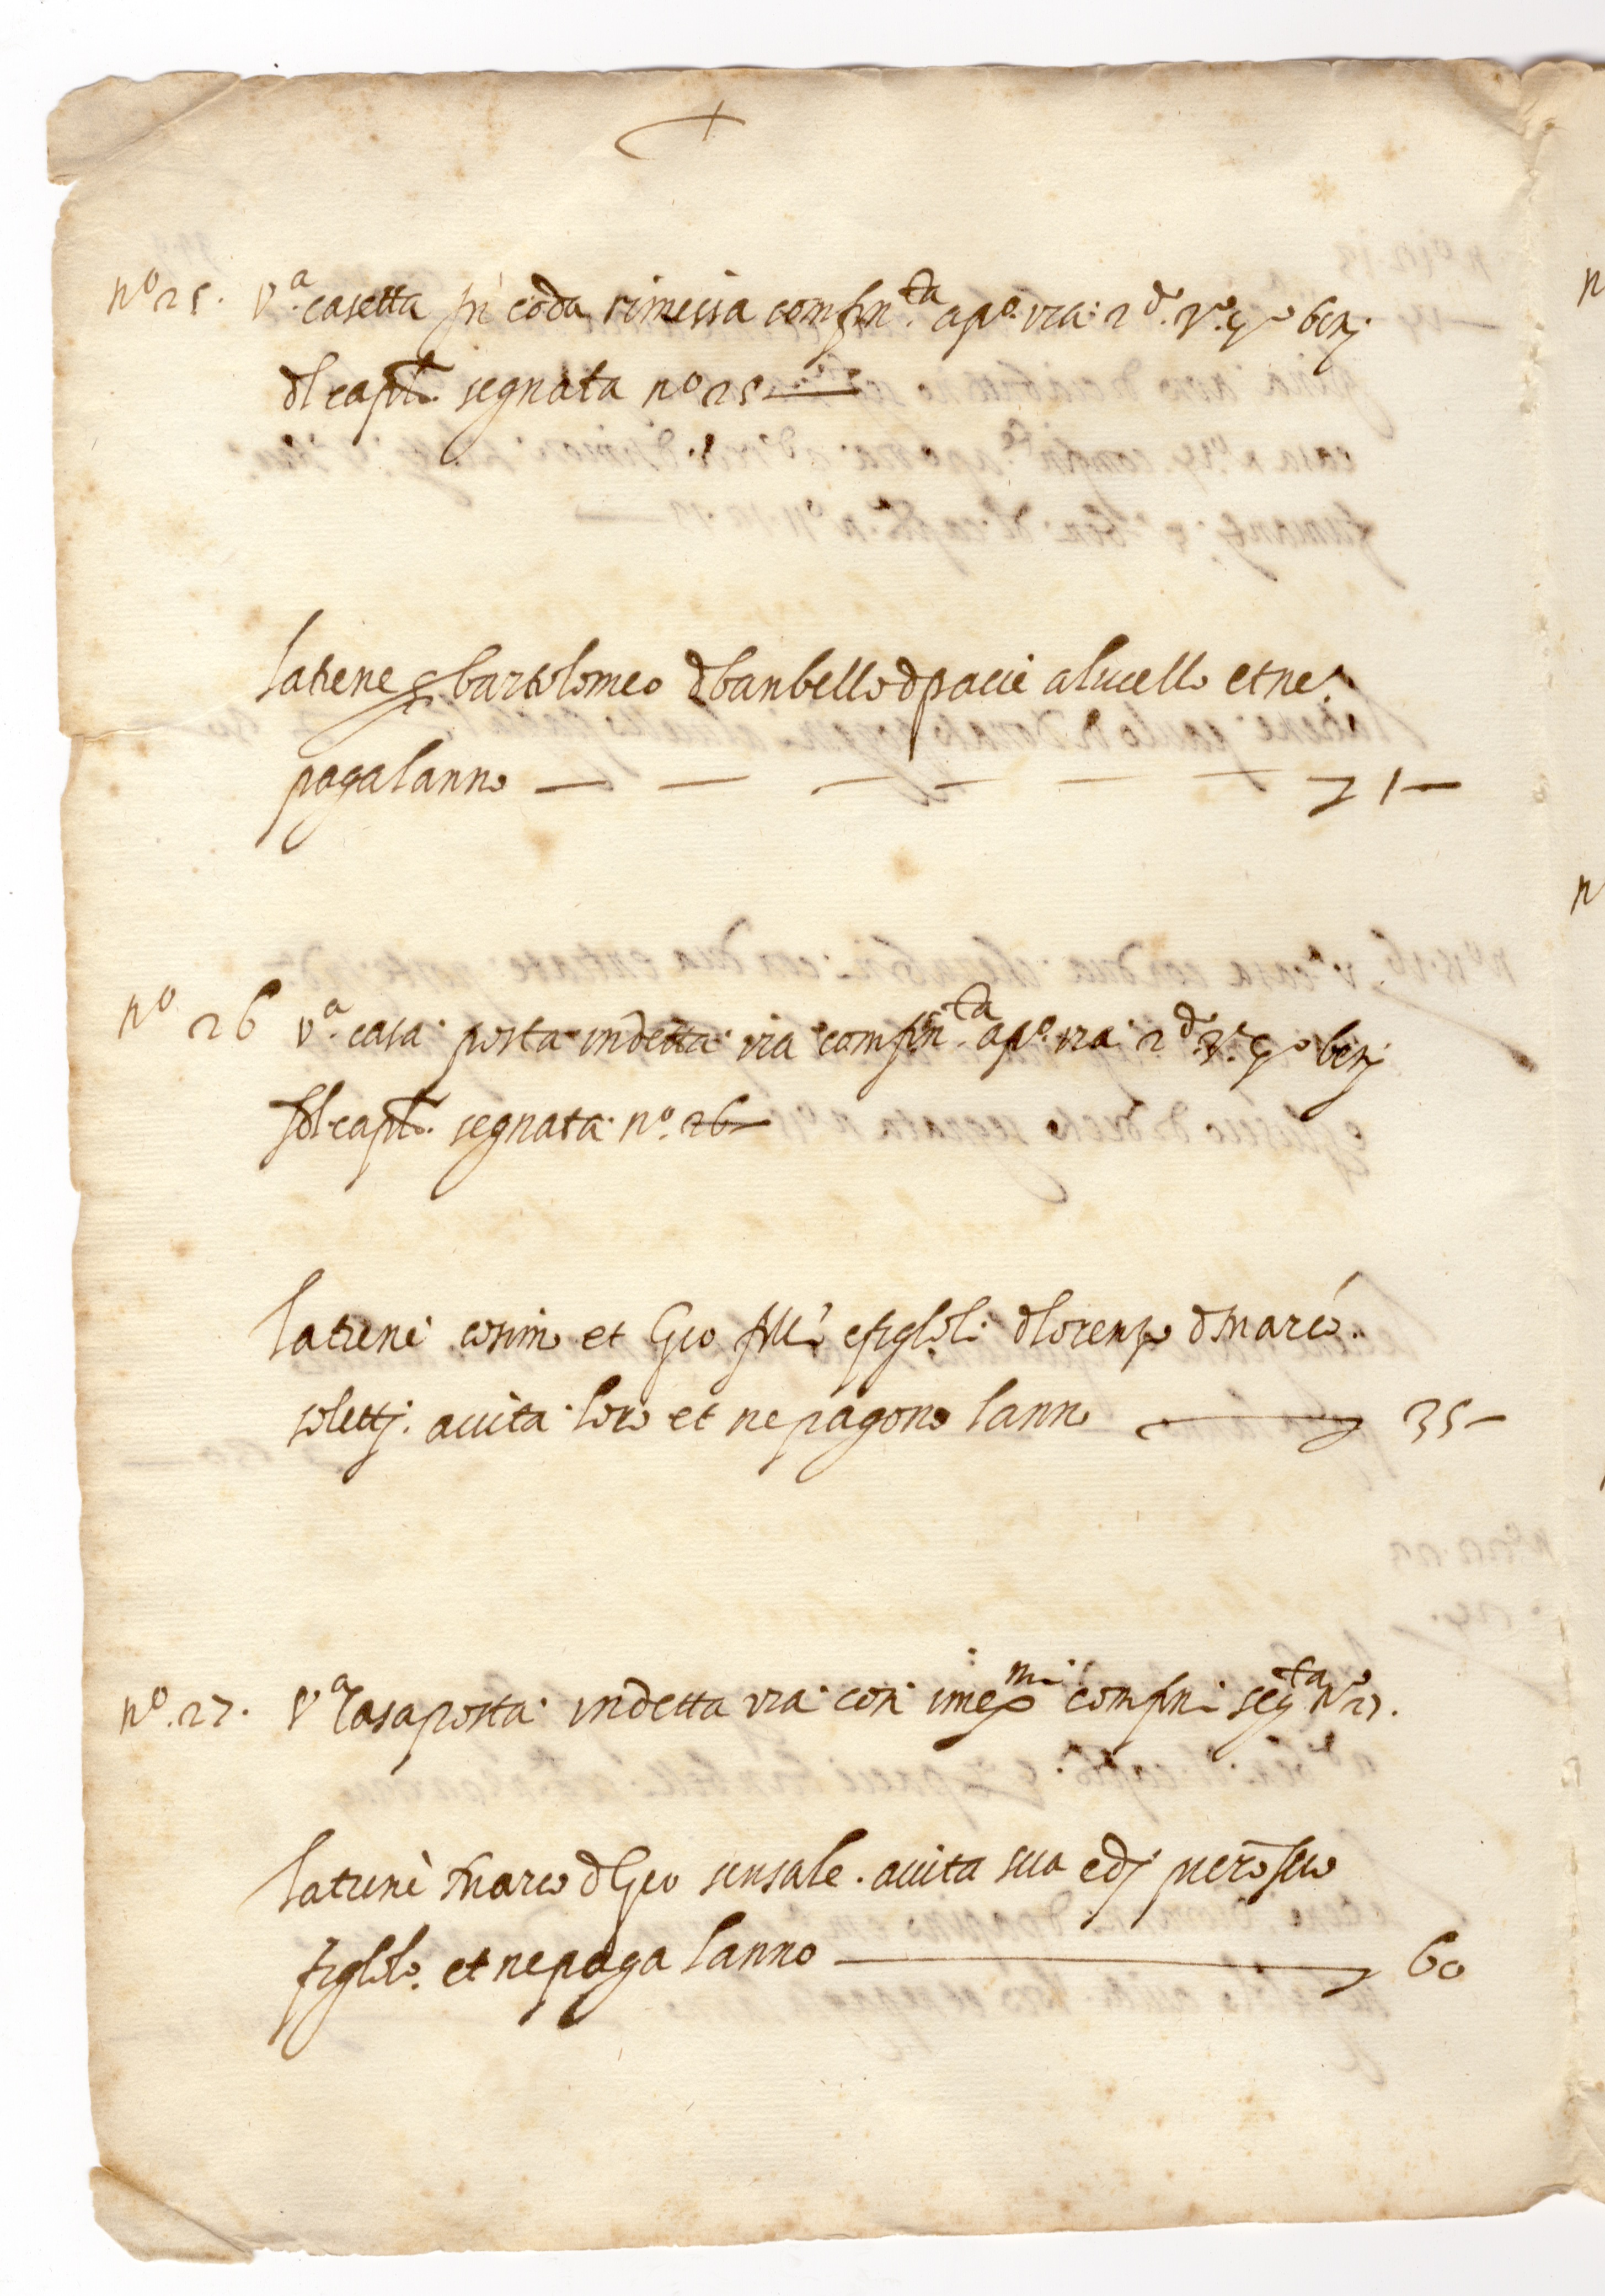 no 25. va. casetta in coda rimessa confin.ta apo. via: 2d. 3o. 4o beni
dl capto. segnata no 25
la tiene bartolomeo d banbello d pacie a livello et ne
paga lanno 71
no 26 va. casa posta in detta via confin.ta apo. via 2d. 3o. 4o beni
dl capto. segnata no. 26
la tiene cosimo et Gio flli e figloli d lorenzo d marco
coletti. a vita loro et ne pagono lanno 35
no. 27. va casa posta in detta via con i medmi confini segta no 27.
la tiene marco d Gio sensale. a vita sua e di
figlolo. et ne paga lanno 60